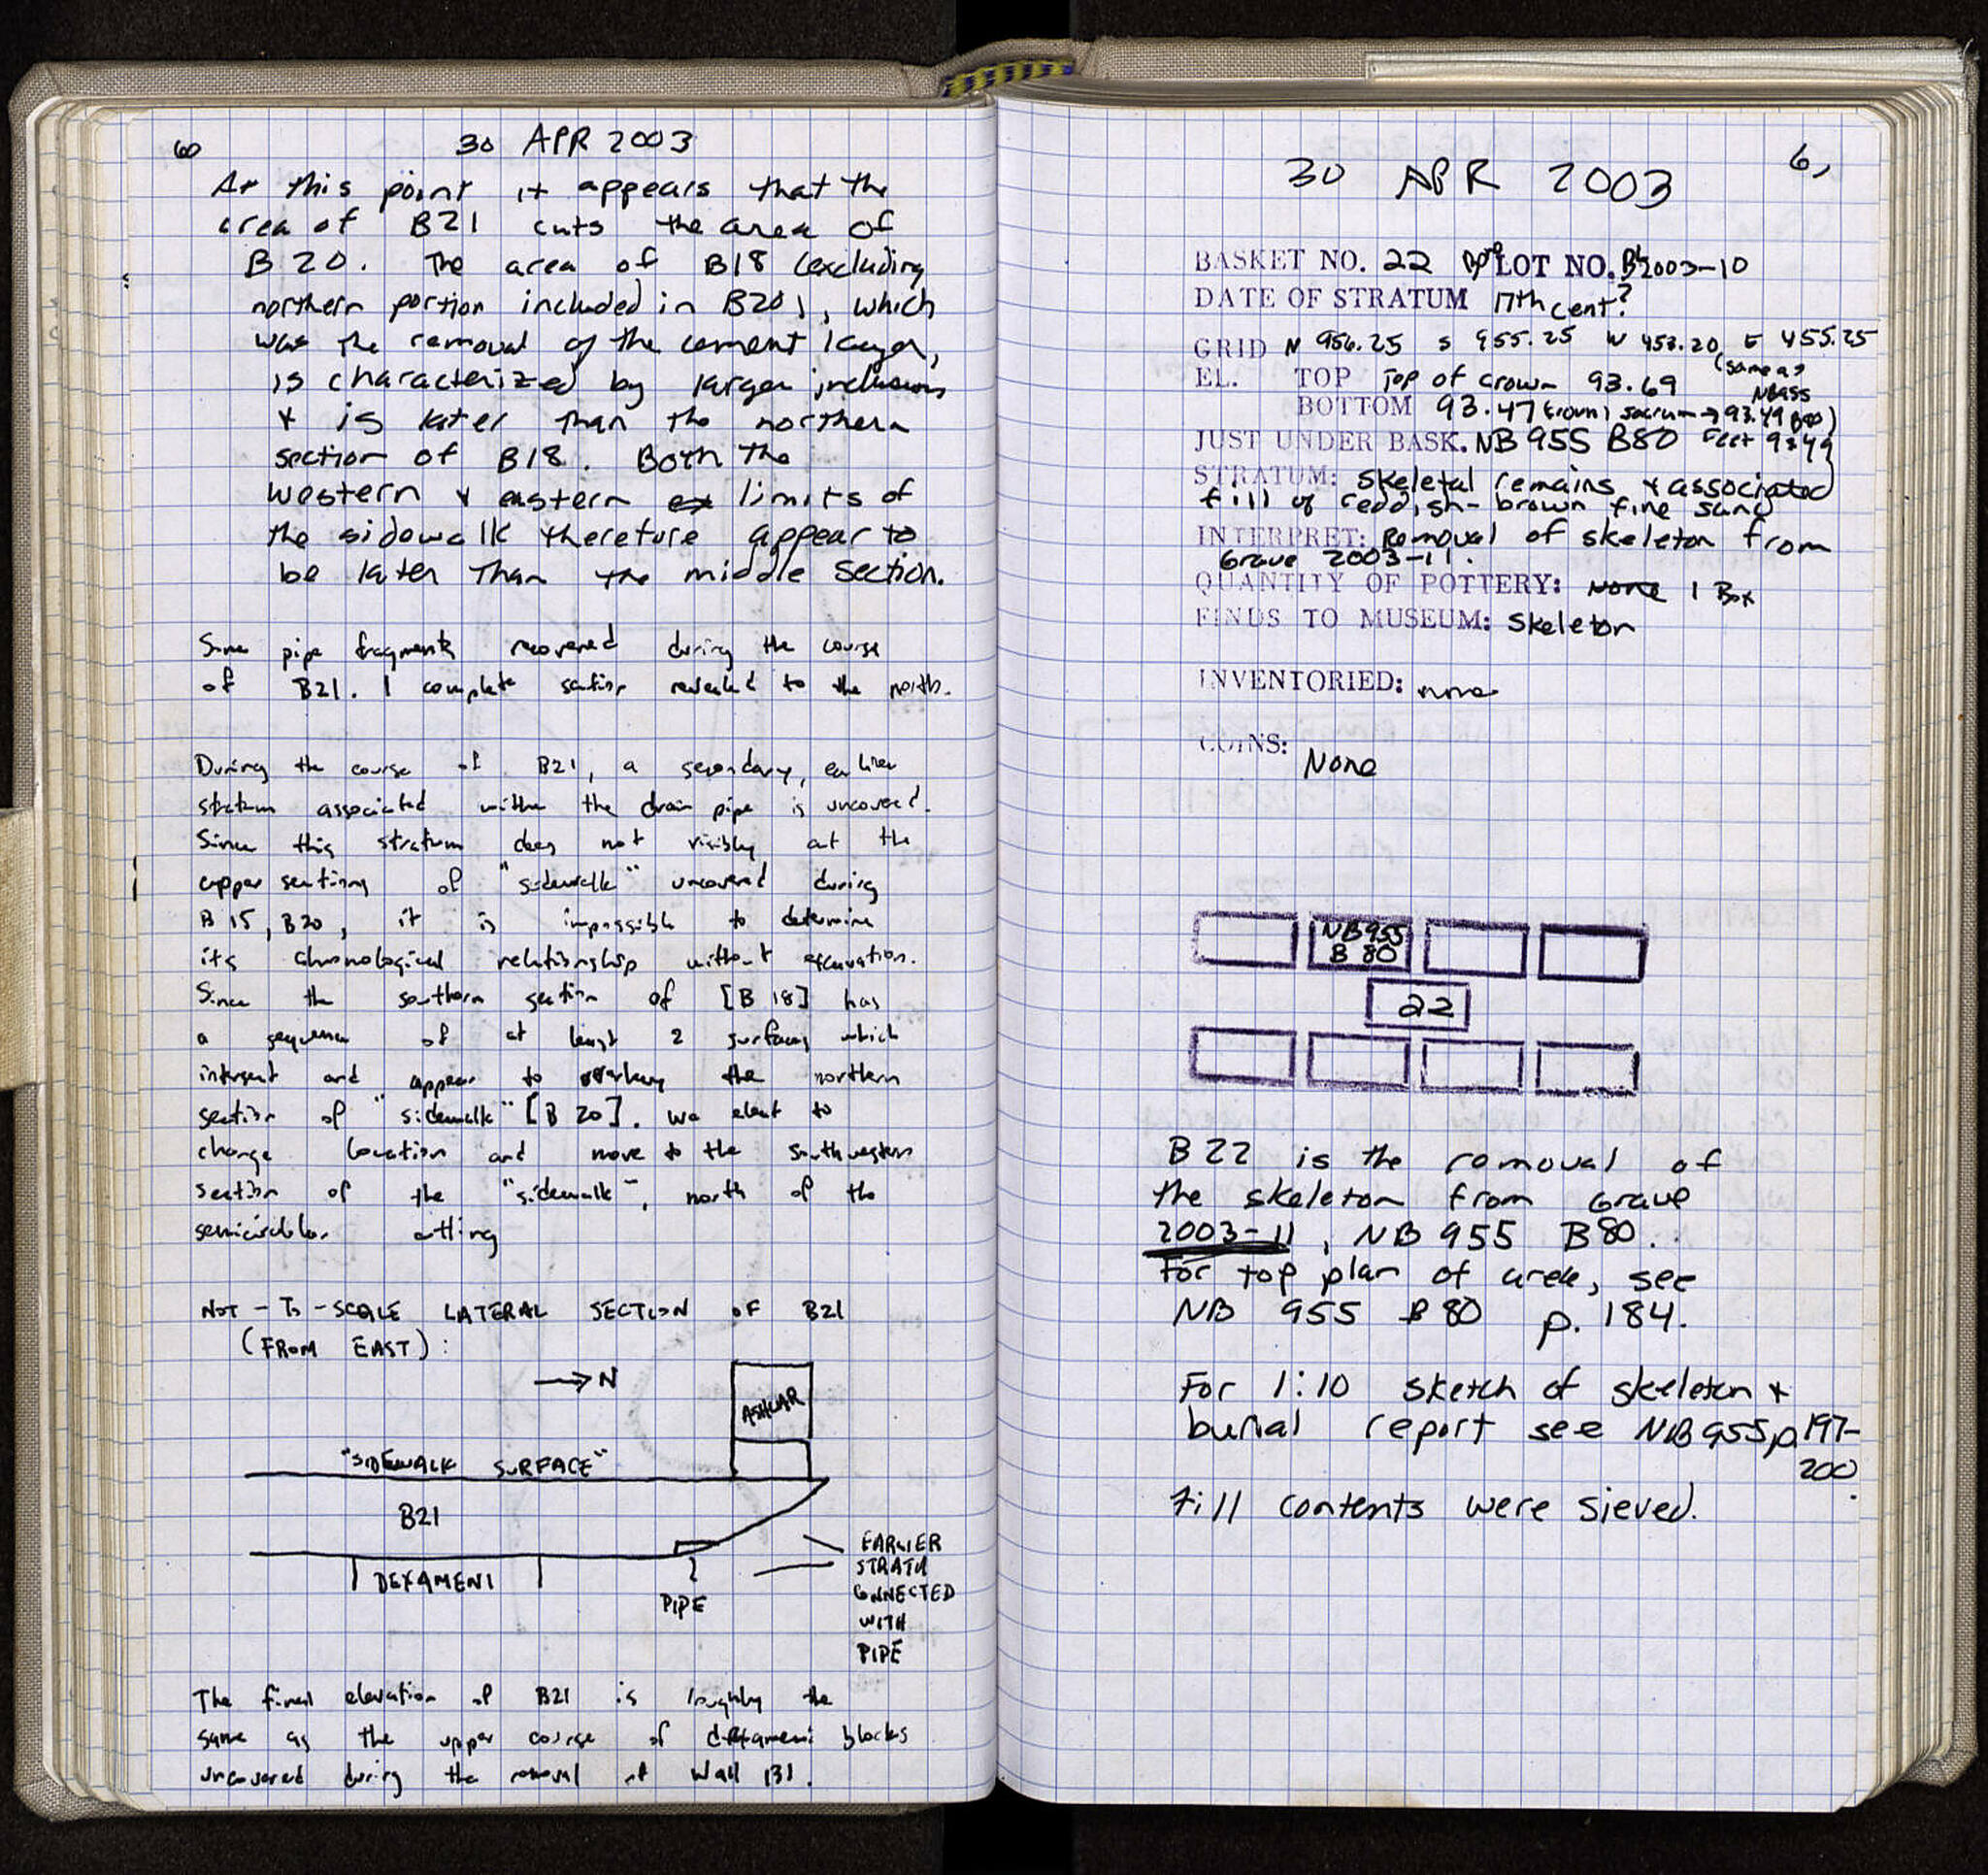 60
30 APR 2003
At this point it appears that the
area of B21 cuts the area of
B20. The area of B18 (excluding
northern portion included in B20), which
was the removal of the cement layer,
is characterized by larger inclusions
& is later than the northern
section of B18. Both the
western & eastern limits of
the sidewalk therefore appear to
be later than the middle section.
Some pipe fragments recovered during the course
of B21. 1 complete section revealed to the north.
During the course of B21, a secondary, earlier
stratum associated with the drain pipe is uncovered.
Since this stratum does not visibly at the
upper sections of "sidewalk" uncovered during
B15, B20, it is impossible to determine
its chronological relationship without excavation.
Since the southern section of [B 18] has
a sequence of at least 2 surfaces which
intersect and appear to overlay the northern
section of "sidewalk" [B 20]. we elect to
change location and move to the southwestern
section of the "sidewalk", north of the
semicircular cutting
NOT-TO-SCALE LATERAL SECTION OF B21
(FROM EAST):
→N
ASHLAR
"SIDEWALK SURFACE"
B21
DEXAMENI
PIPE
EARLIER
STRATA
CONNECTED
WITH
PIPE
The final elevation of B21 is roughly the
same as the upper course of dexameni blocks
uncovered during the removal of Wall 131.
30 APR 2003
61
BASKET NO. 22 LOT NO. 2003-10
DATE OF STRATUM 17th cent?
GRID N 956.25 S 955.25 W 453.20 E 455.25
EL. TOP Top of crown 93.69 (same as
BOTTOM 93.47 (crown) sacrum → 93.49
JUST UNDER BASK. NB 955 B80 Feet 93.49)
STRATUM: Skeletal remains & associated
fill of reddish-brown fine sand
INTERPRET: Removal of skeleton from
Grave 2003-11.
QUANTITY OF POTTERY: None 1 Box
FINDS TO MUSEUM: Skeleton
INVENTORIED: none
COINS: None
NB955
B 80
22
B22 is the removal of
the skeleton from Grave
2003-11, NB 955 B80.
For top plan of area, see
NB 955 B80 p. 184.
For 1:10 sketch of skeleton &
burial report see NB955, p. 197-
200.
Fill contents were sieved.